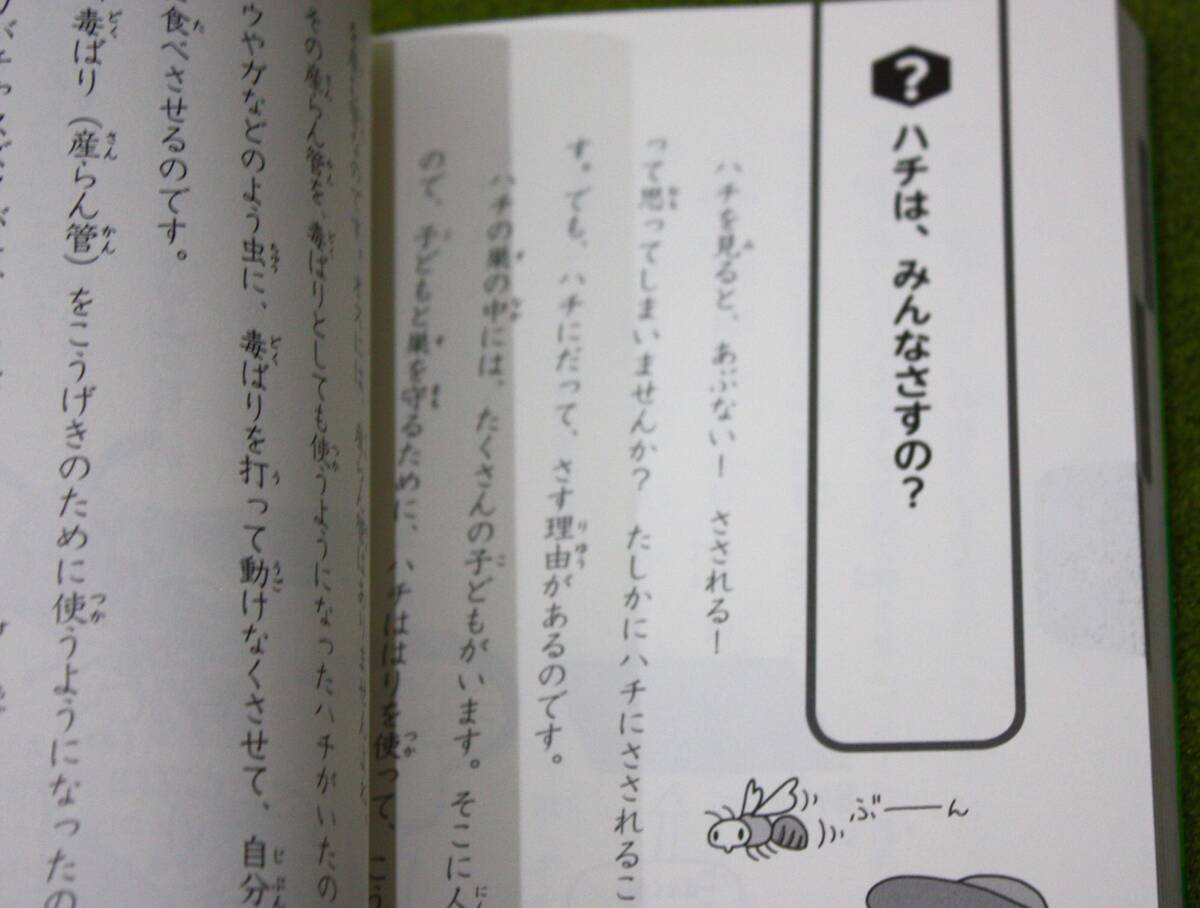 ?
ハチは、みんなさすの?
ハチを見ると、あぶない! さされる!
って思ってしまいませんか? たしかにハチにさされるこ
す。でも、ハチにだって、さす理由があるのです。
ハチの巣の中には、たくさんの子どもがいます。そこに人
ので、子どもと巣を守るために、ハチははりを使って、こう
ぶーーん
その産らん管を、毒ばりとしても使うようになったハチがいたの
ウやガなどのよう虫に、毒ばりを打って動けなくさせて、自分
食べさせるのです。
毒ばり(産らん管)をこうげきのために使うようになったの